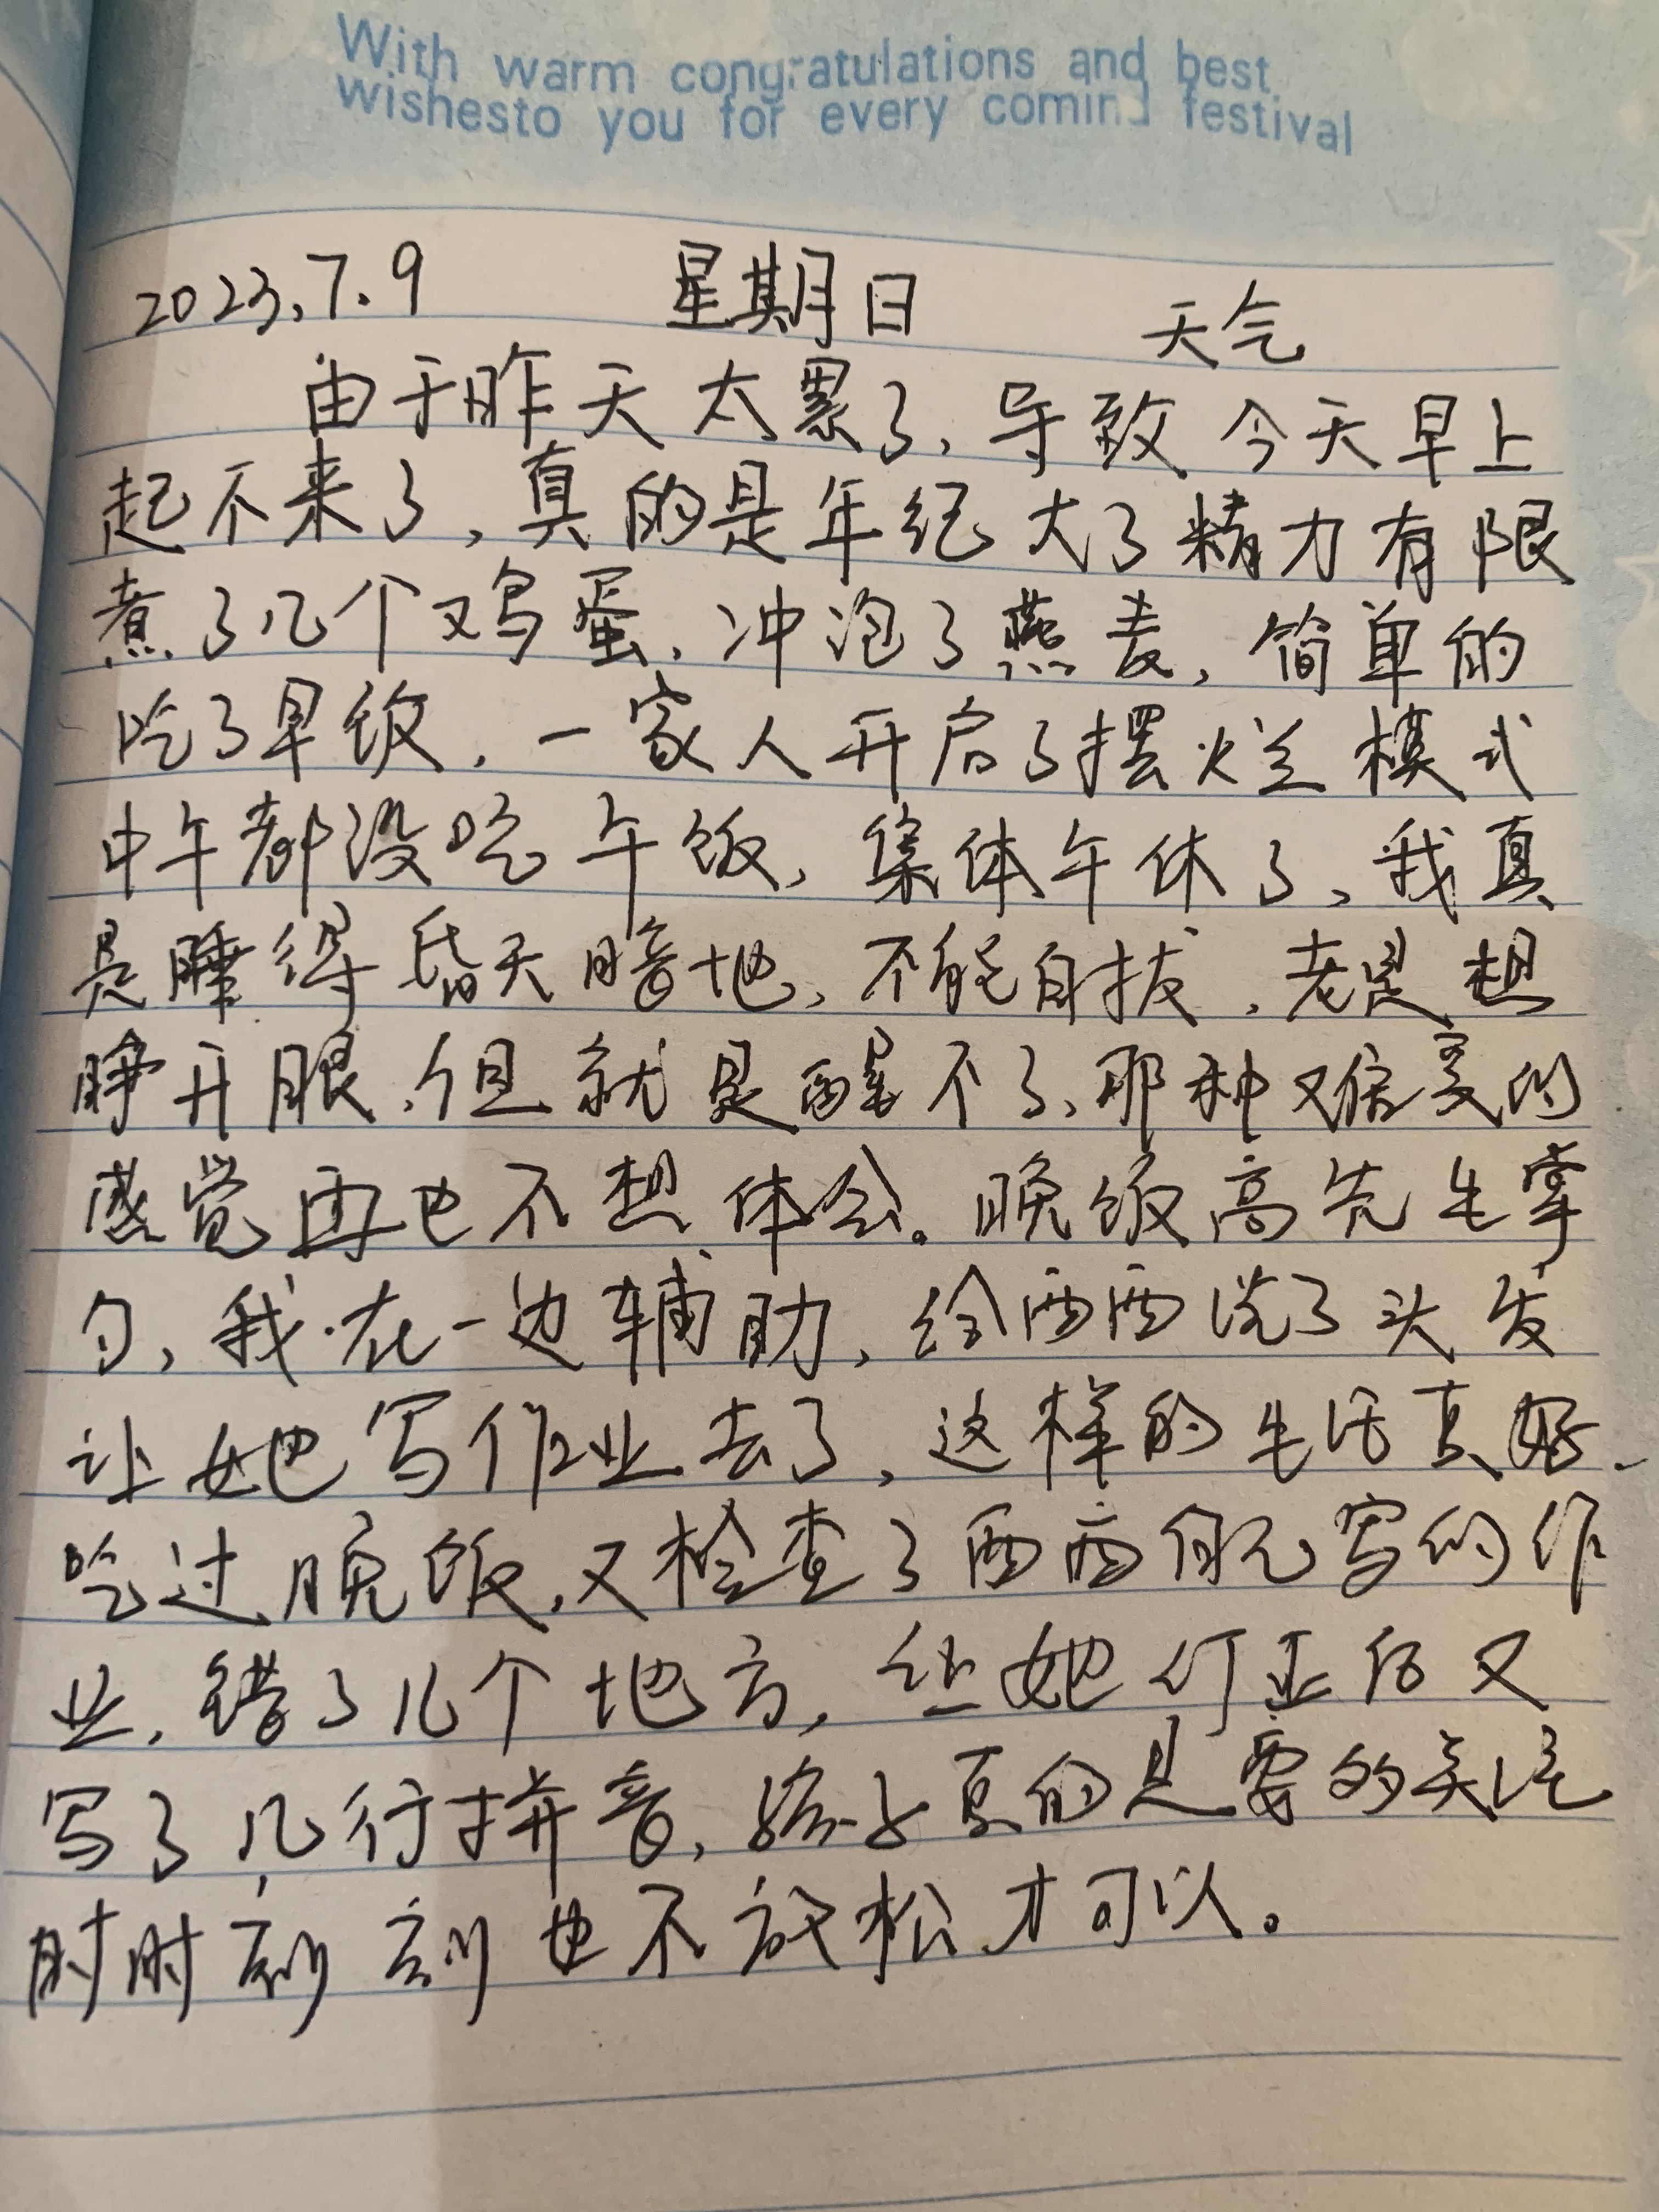 With warm congratulations and best
wishesto you for every coming festival
2023.7.9 星期日 天气
由于昨天太累了,导致今天早上
起不来了,真的是年纪大了精力有限
煮了几个鸡蛋,冲泡了燕麦,简单的
吃了早饭,一家人开启了摆烂模式
中午都没吃午饭,集体午休了,我真
是睡得昏天暗地,不能自拔,老是想
睁开眼,但就是醒不了,那种疲惫的
感觉再也不想体会。晚饭高先生掌
勺,我在一边辅助,给西西洗了头发
让她写作业去了,这样的生活真好.
吃过晚饭,又检查了西西写的作
业,错了几个地方,给她订正后又
写了几行拼音,孩子真的是要的关注
时时刻刻也不放松才可以。